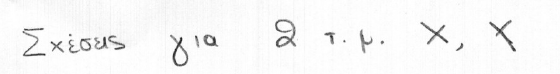 Σχέσεις για 2 τ.μ. Χ, Υ